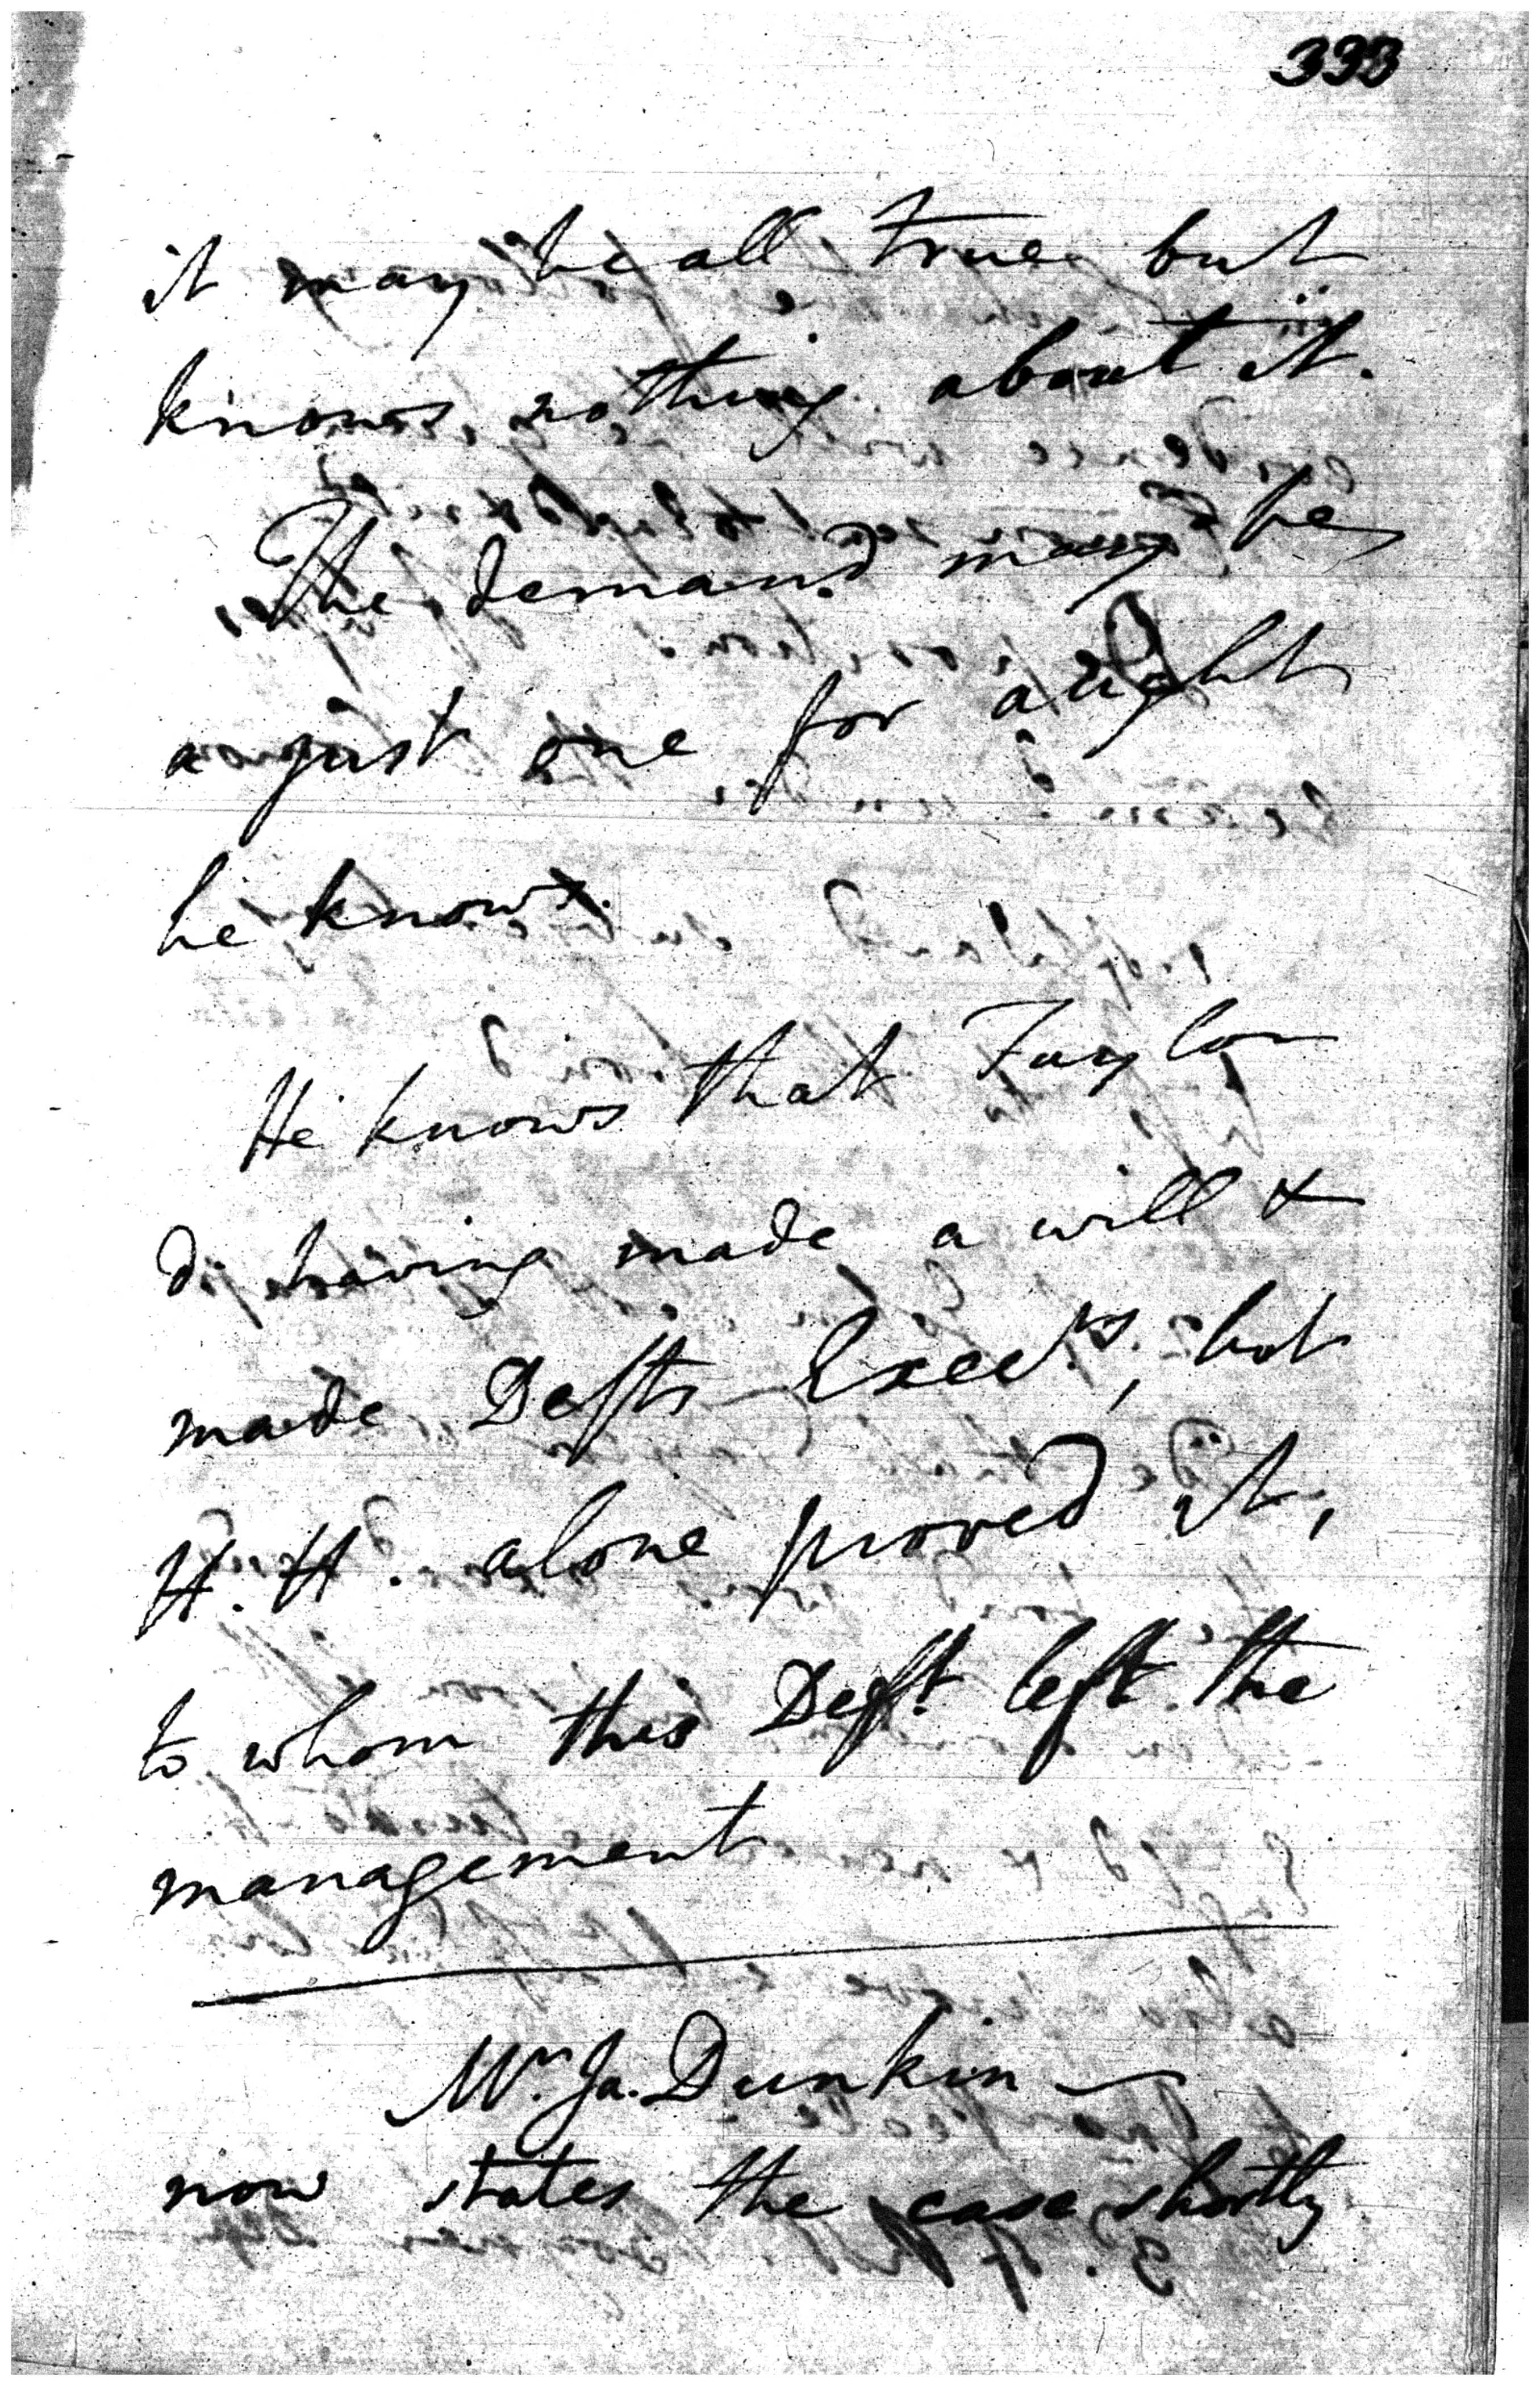 333
it may be all true but
knows nothing about it.
The demand may be
a just one for aught
he knows.
He knows that Taylor
d: having made a will &
made Defts Exec.rs, but
H. H. alone proved it,
to whom this Deft. left the
management
Mr. Ja. Dunkin —
now states the case shortly